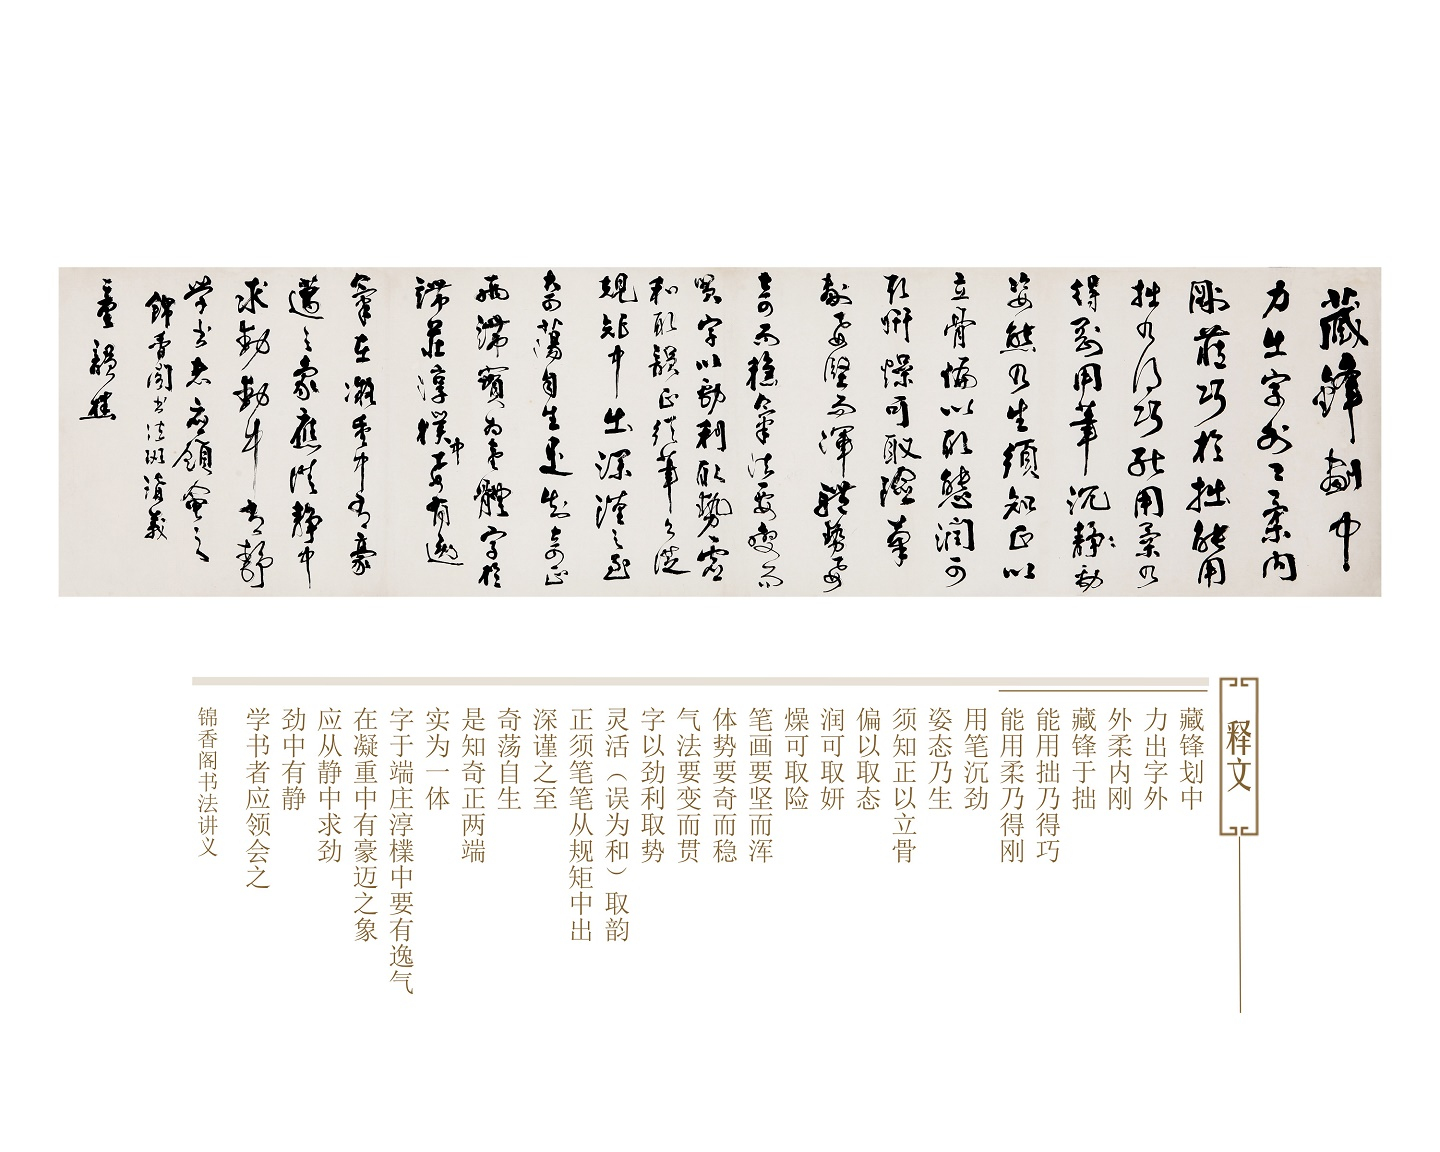 藏鋒劃中
力出字外〻柔内
剛藏巧於拙能用
拙乃得巧能用柔乃
得剛用筆沉静劲
姿態乃生須知正以
立骨偏以取態润可
取妍燥可取險筆
劃要堅而渾體势要
奇而穩氣法要变而
贯字以劲利取势靈
和取韻正须筆〻從
規矩中出深谨之至
奇蕩自生是知奇正
兩端實为壹體字於
端莊淳樸中要有逸
氣在凝重中有豪
邁之象應從静中
求勁勁中有静
学书者应領會之
錦香閣书法班講義
释文
藏锋划中
力出字外
外柔内刚
藏锋于拙
能用拙乃得巧
能用柔乃得刚
用笔沉劲
姿态乃生
须知正以立骨
偏以取态
润可取妍
燥可取险
笔画要坚而浑
体势要奇而稳
气法要变而贯
字以劲利取势
灵活（误为和）取韵
正须笔笔从规矩中出
深谨之至
奇荡自生
是知奇正两端
实为一体
字于端庄淳檏中要有逸气
在凝重中有豪迈之象
应从静中求劲
劲中有静
学书者应领会之
锦香阁书法讲义